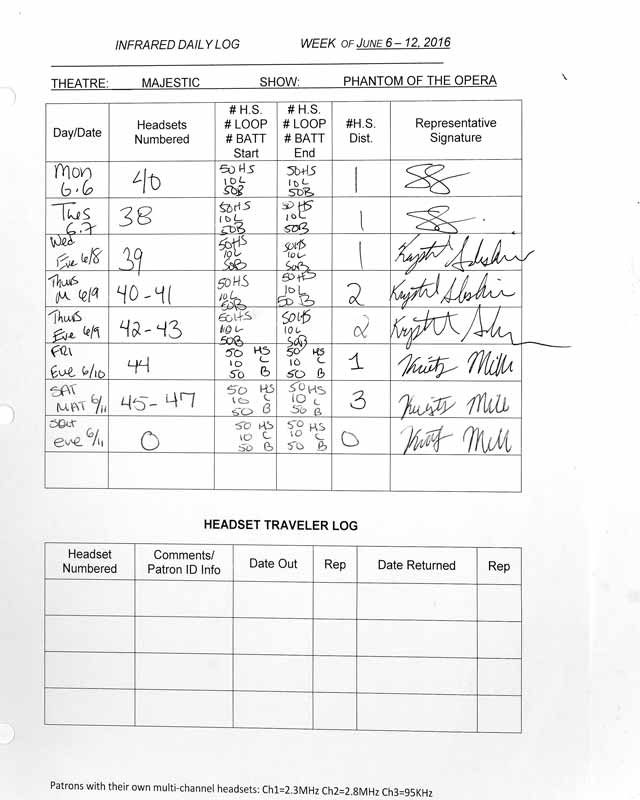 INFRARED DAILY LOG WEEK OF JUNE 6 – 12, 2016
THEATRE: MAJESTIC SHOW: PHANTOM OF THE OPERA
Day/Date Headsets Numbered # H.S. # LOOP # BATT Start # H.S. # LOOP # BATT End #H.S. Dist. Representative Signature
Mon 6.6 40 50HS 10L 50B 50HS 10L 50B 1
Tues 6.7 38 50HS 10L 50B 50HS 10L 50B 1
Wed Eve 6/8 39 50HS 10L 50B 50HS 10L 50B 1 Krystal
Thurs M 6/9 40-41 50HS 10L 50B 50HS 10L 50B 2 Krystal
Thurs Eve 6/9 42-43 50HS 10L 50B 50HS 10L 50B 2 Krystal
FRI Eve 6/10 44 50 HS 10 L 50 B 50 HS 10 L 50 B 1
SAT MAT 6/11 45-47 50 HS 10 L 50 B 50 HS 10 L 50 B 3
Sat eve 6/11 0 50 HS 10 L 50 B 50 HS 10 L 50 B 0
HEADSET TRAVELER LOG
Headset Numbered Comments/ Patron ID Info Date Out Rep Date Returned Rep
Patrons with their own multi-channel headsets: Ch1=2.3MHz Ch2=2.8MHz Ch3=95KHz